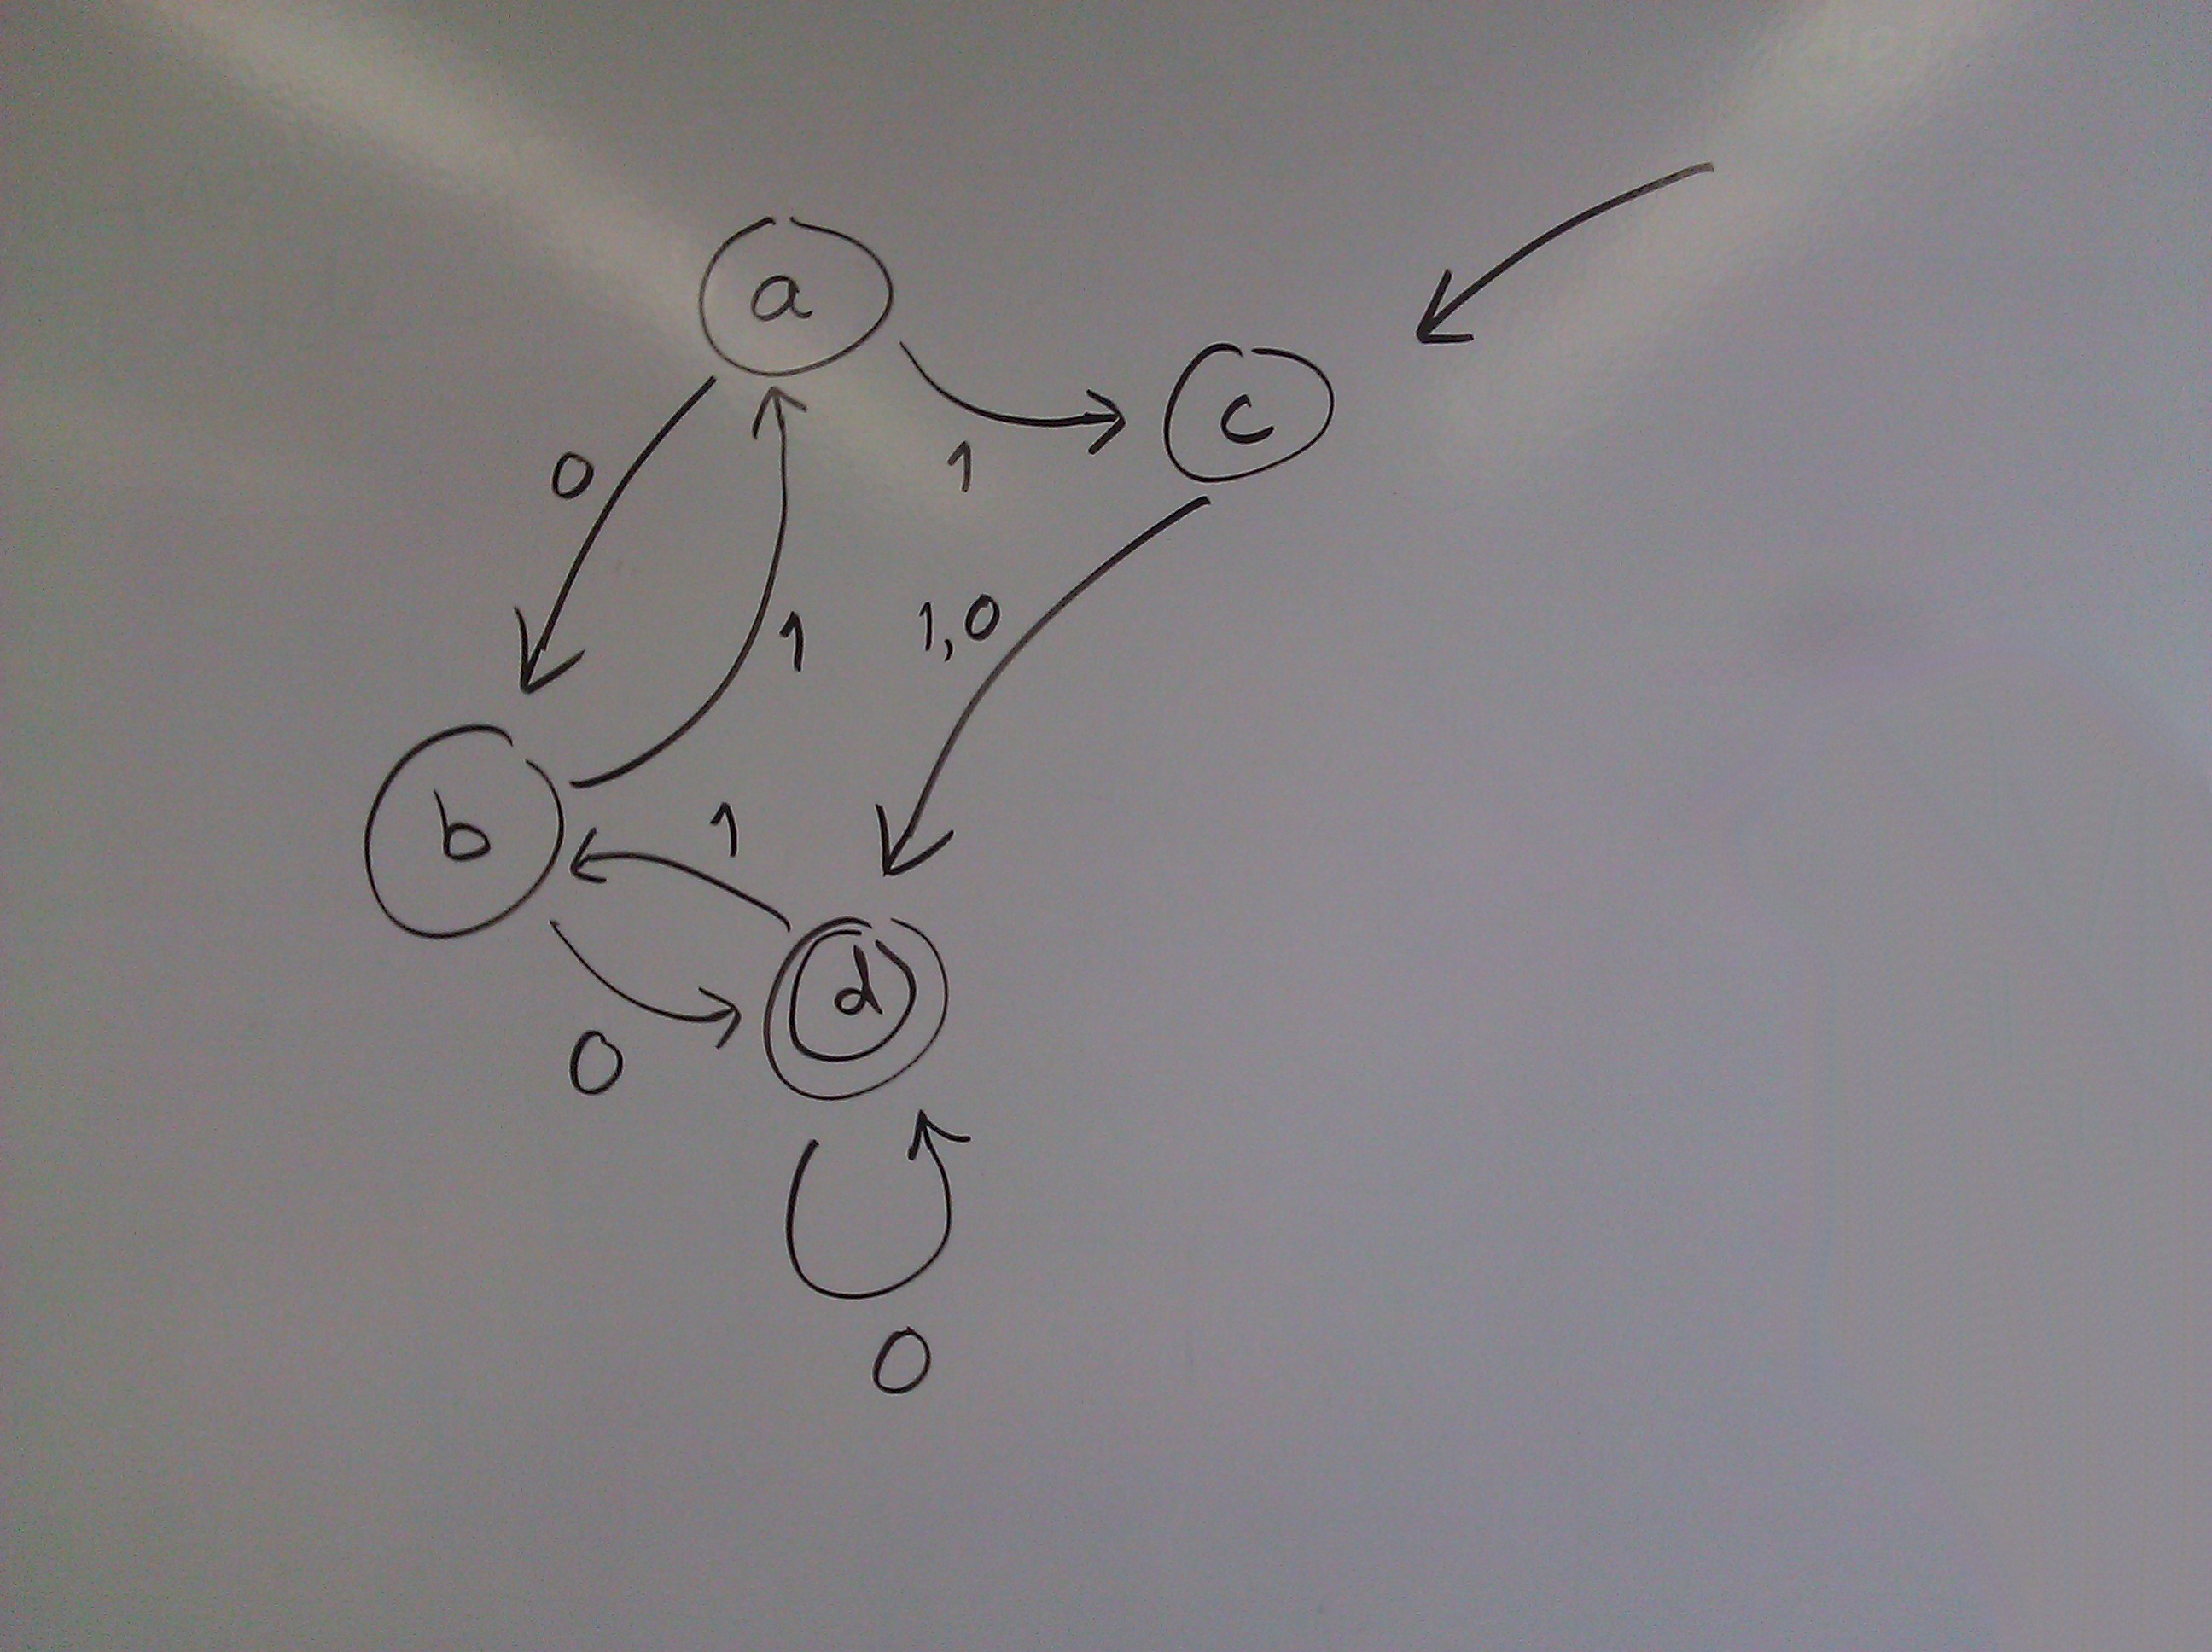 a
c
0
1
1
1,0
b
1
d
0
0